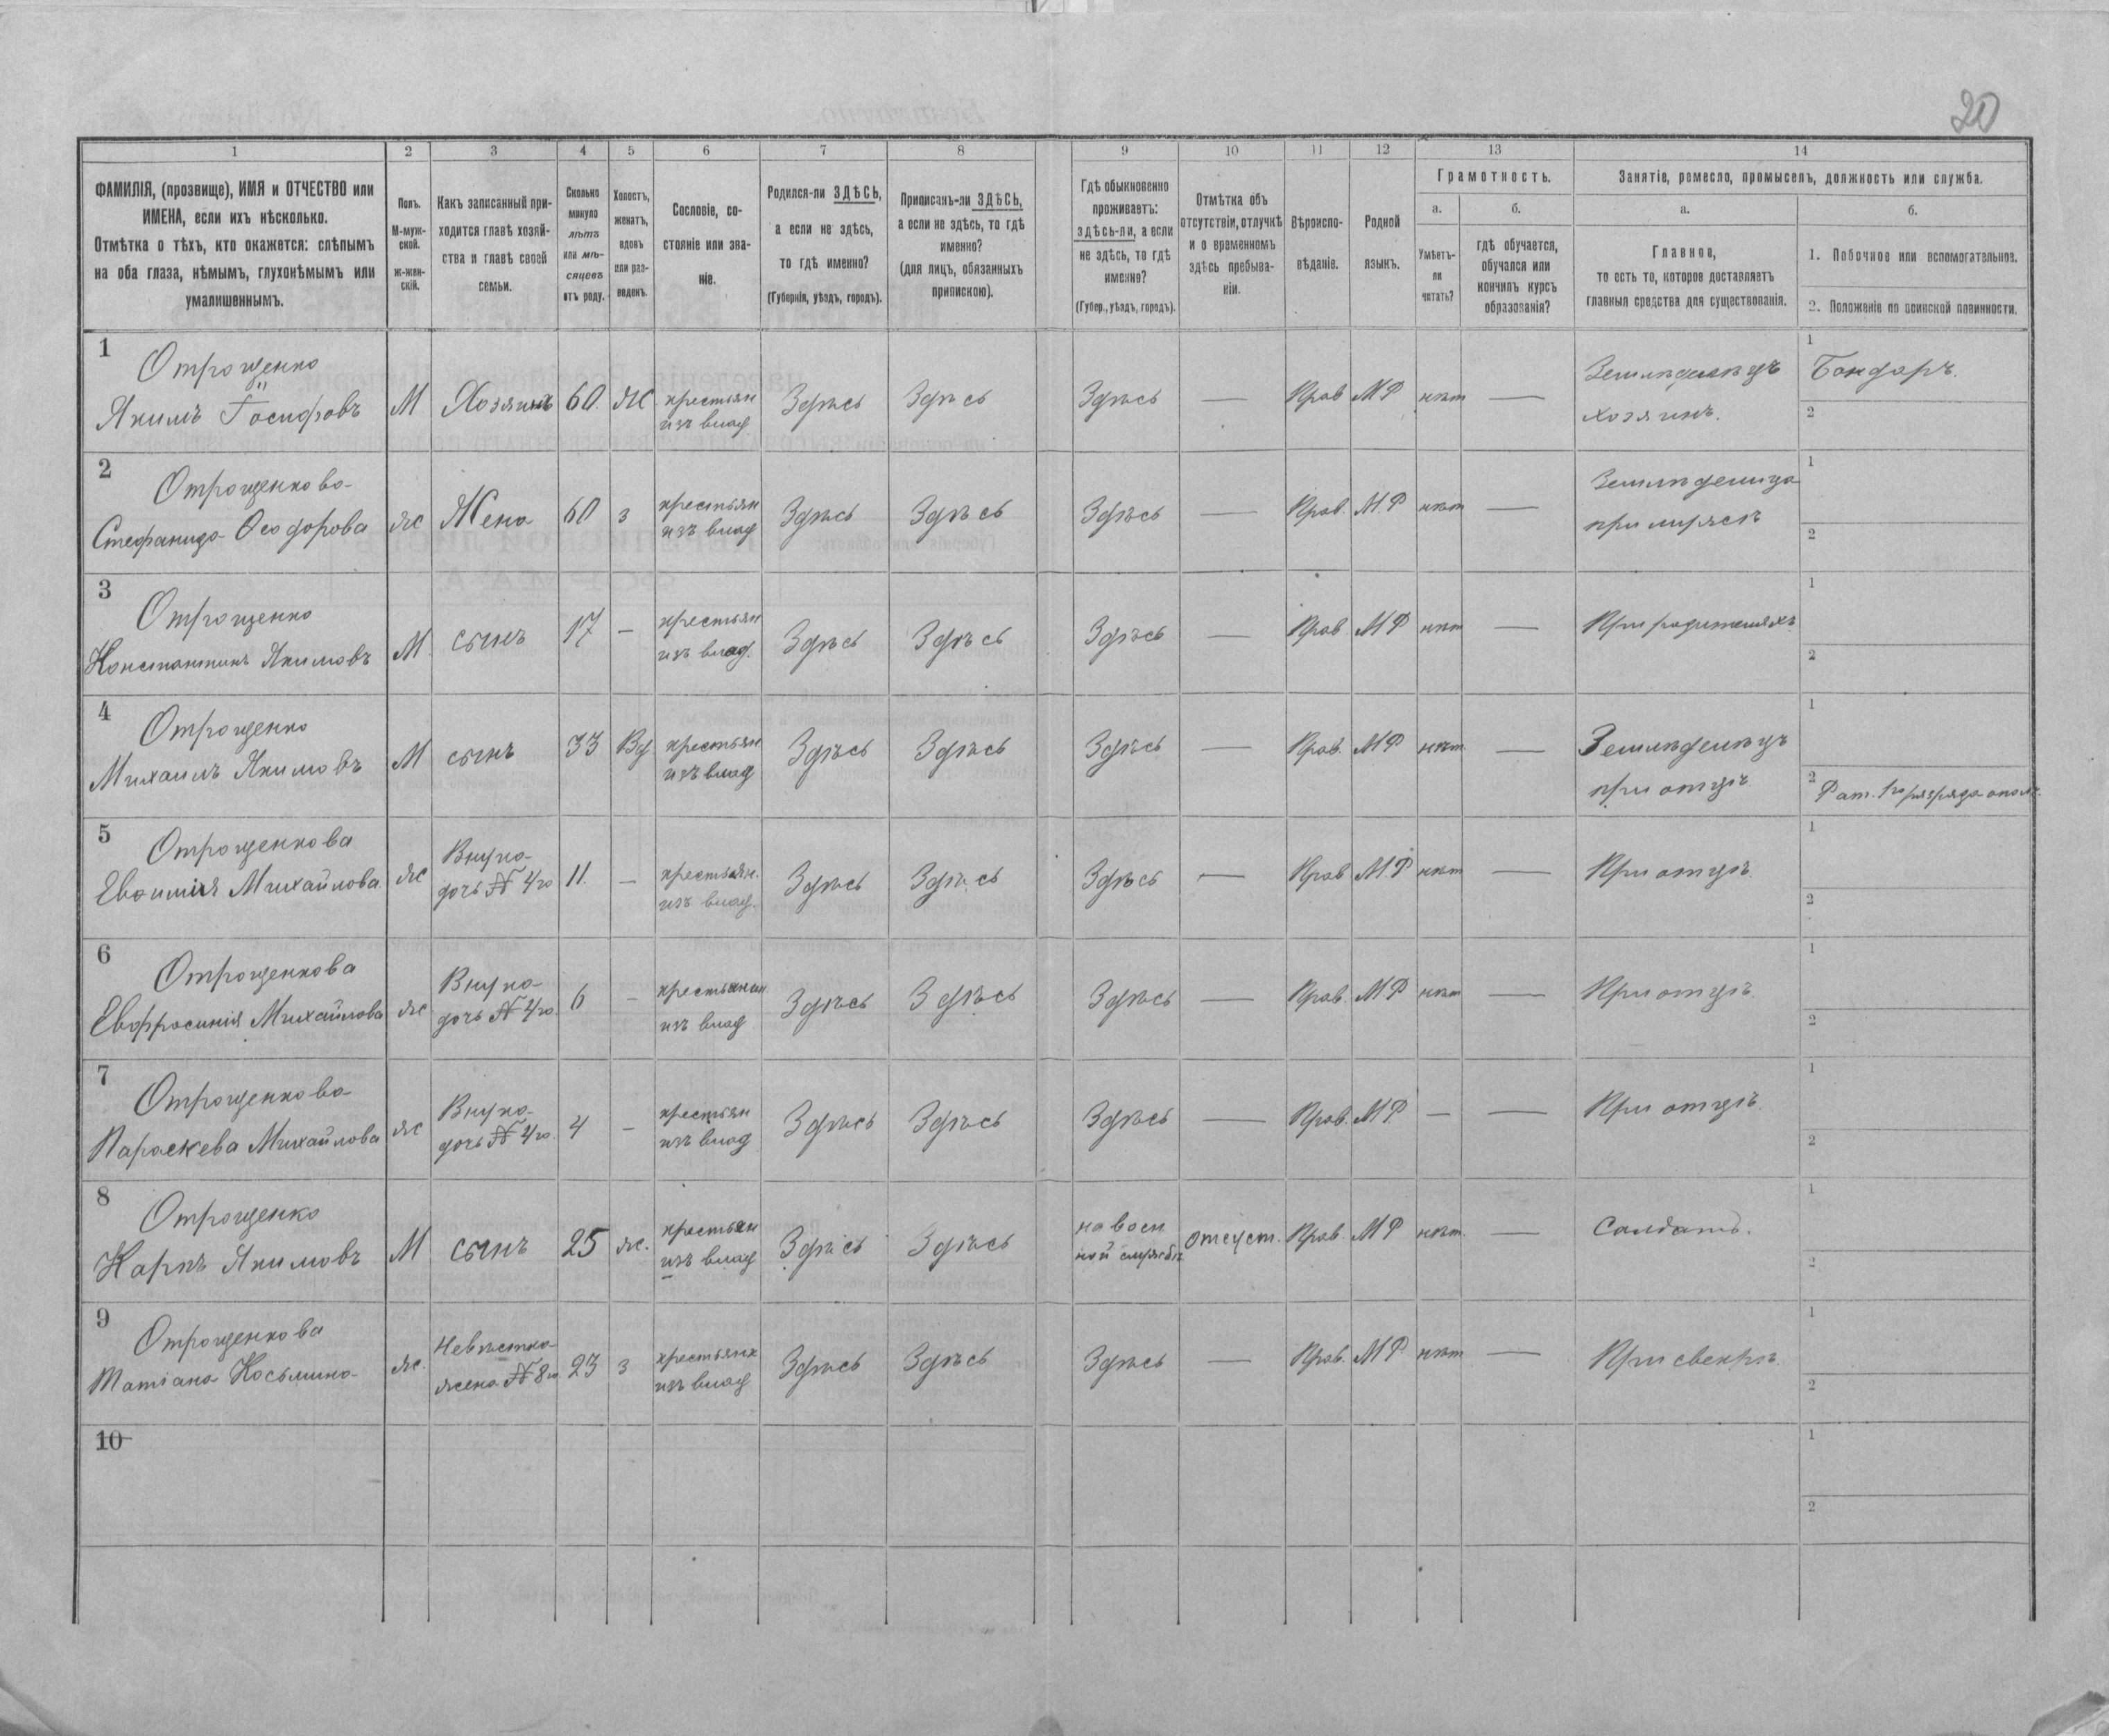 20
1
2
3
4
5
6
7
8
9
10
11
12
13
14
ФАМИЛІЯ, (прозвище), ИМЯ и ОТЧЕСТВО или
ИМЕНА, если ихъ нѣсколько.
Отмѣтка о тѣхъ, кто окажется: слѣпымъ
на оба глаза, нѣмымъ, глухонѣмымъ или
умалишеннымъ.
Полъ.
М-муж-
ской.
ж-жен-
скій.
Какъ записанный при-
ходится главѣ хозяй-
ства и главѣ своей
семьи.
Сколько
минуло
лѣтъ
или мѣ-
сяцевъ
отъ роду.
Холостъ,
женатъ,
вдовъ
или раз-
веденъ.
Сословіе, со-
стояніе или зва-
ніе.
Родился-ли ЗДѢСЬ,
а если не здѣсь,
то гдѣ именно?
(Губернія, уѣздъ, городъ).
Приписанъ-ли ЗДѢСЬ,
а если не здѣсь, то гдѣ
именно?
(для лицъ, обязанныхъ
припискою).
Гдѣ обыкновенно
проживаетъ:
здѣсь-ли, а если
не здѣсь, то гдѣ
именно?
(Губер., уѣздъ, городъ).
Отмѣтка объ
отсутствіи, отлучкѣ
и о временномъ
здѣсь пребыва-
ніи.
Вѣроиспо-
вѣданіе.
Родной
языкъ.
Грамотность.
а.
Умѣетъ-
ли
читать?
б.
гдѣ обучается,
обучался или
кончилъ курсъ
образованія?
Занятіе, ремесло, промыселъ, должность или служба.
а.
Главное,
то есть то, которое доставляетъ
главныя средства для существованія.
б.
1. Побочное или вспомогательное.
2. Положеніе по воинской повинности.
1
Отрощенко
Якимъ Іосифовъ
М
Хозяинъ
60.
Ж
крестьян
изъ влад
Здѣсь
Здѣсь
Здѣсь
—
Прав
МР
нѣт
—
Земледѣлецъ
хозяинъ.
1
Бондаръ.
2
2
Отрощенкова
Стефанида Ѳеодорова
ж
Жена
60
з
крестьян
изъ влад
Здѣсь
Здѣсь
Здѣсь
—
Прав.
М.Р
нѣт
—
при мужѣ
1
2
3
Отрощенко
Константинъ Якимовъ
М
сынъ
17
—
крестьян
изъ влад.
Здѣсь
Здѣсь
Здѣсь
—
Прав
МР
нѣт
—
При родителяхъ
1
2
4
Отрощенко
Михаилъ Якимовъ
М
сынъ
33
Вд
крестьян
изъ влад
Здѣсь
Здѣсь
Здѣсь
—
Прав.
МР
нѣт.
—
Земледѣлецъ
при отцѣ
1
2
Рат. 1го разряда ополч.
5
Отрощенкова
Евѳимія Михайлова
ж
Внука
дочь № 4го
11.
—
крестьян.
изъ влад.
Здѣсь
Здѣсь
Здѣсь
—
Прав
М.Р
нѣт
—
При отцѣ
1
2
6
Отрощенкова
Евфросинія Михайлова
ж
Внука
дочь № 4го.
6
—
крестьянин
изъ влад
Здѣсь
Здѣсь
Здѣсь
—
Прав.
МР
нѣт
—
При отцѣ.
1
2
7
Отрощенкова
Параскева Михайлова
ж
Внука
дочь № 4го.
4
—
крестьян
изъ влад
Здѣсь
Здѣсь
Здѣсь
—
Прав.
МР.
—
—
При отцѣ.
1
2
8
Отрощенко
Карпъ Якимовъ
М
сынъ
25
ж.
крестьян
изъ влад
Здѣсь
Здѣсь
на воен
ной службѣ
отсуст.
Прав.
МР
нѣт.
—
Салдатъ.
1
2
9
Отрощенкова
Татіана Косьмина
ж.
Невѣстка
жена № 8го.
23
з
крестьянк
изъ влад
Здѣсь
Здѣсь
Здѣсь
—
Прав.
МР
нѣт
—
При свекрѣ.
1
2
10
1
2